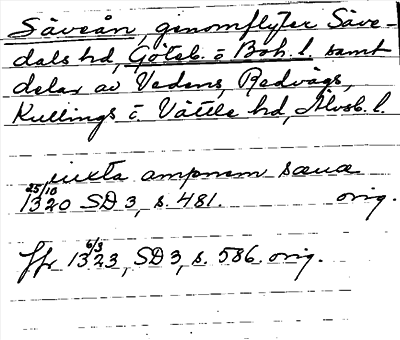 Säveån, genomflyter Säve-
dals hd, Göteb. o Boh. l. samt
delar av Vedens, Redvägs,
Kullings o. Vättle hd, Älvsb. l.
iuxta ampnem sæua
25/10 1320 SD 3, s. 481. orig.
ffr 6/3 1323, SD 3, s. 586. orig.